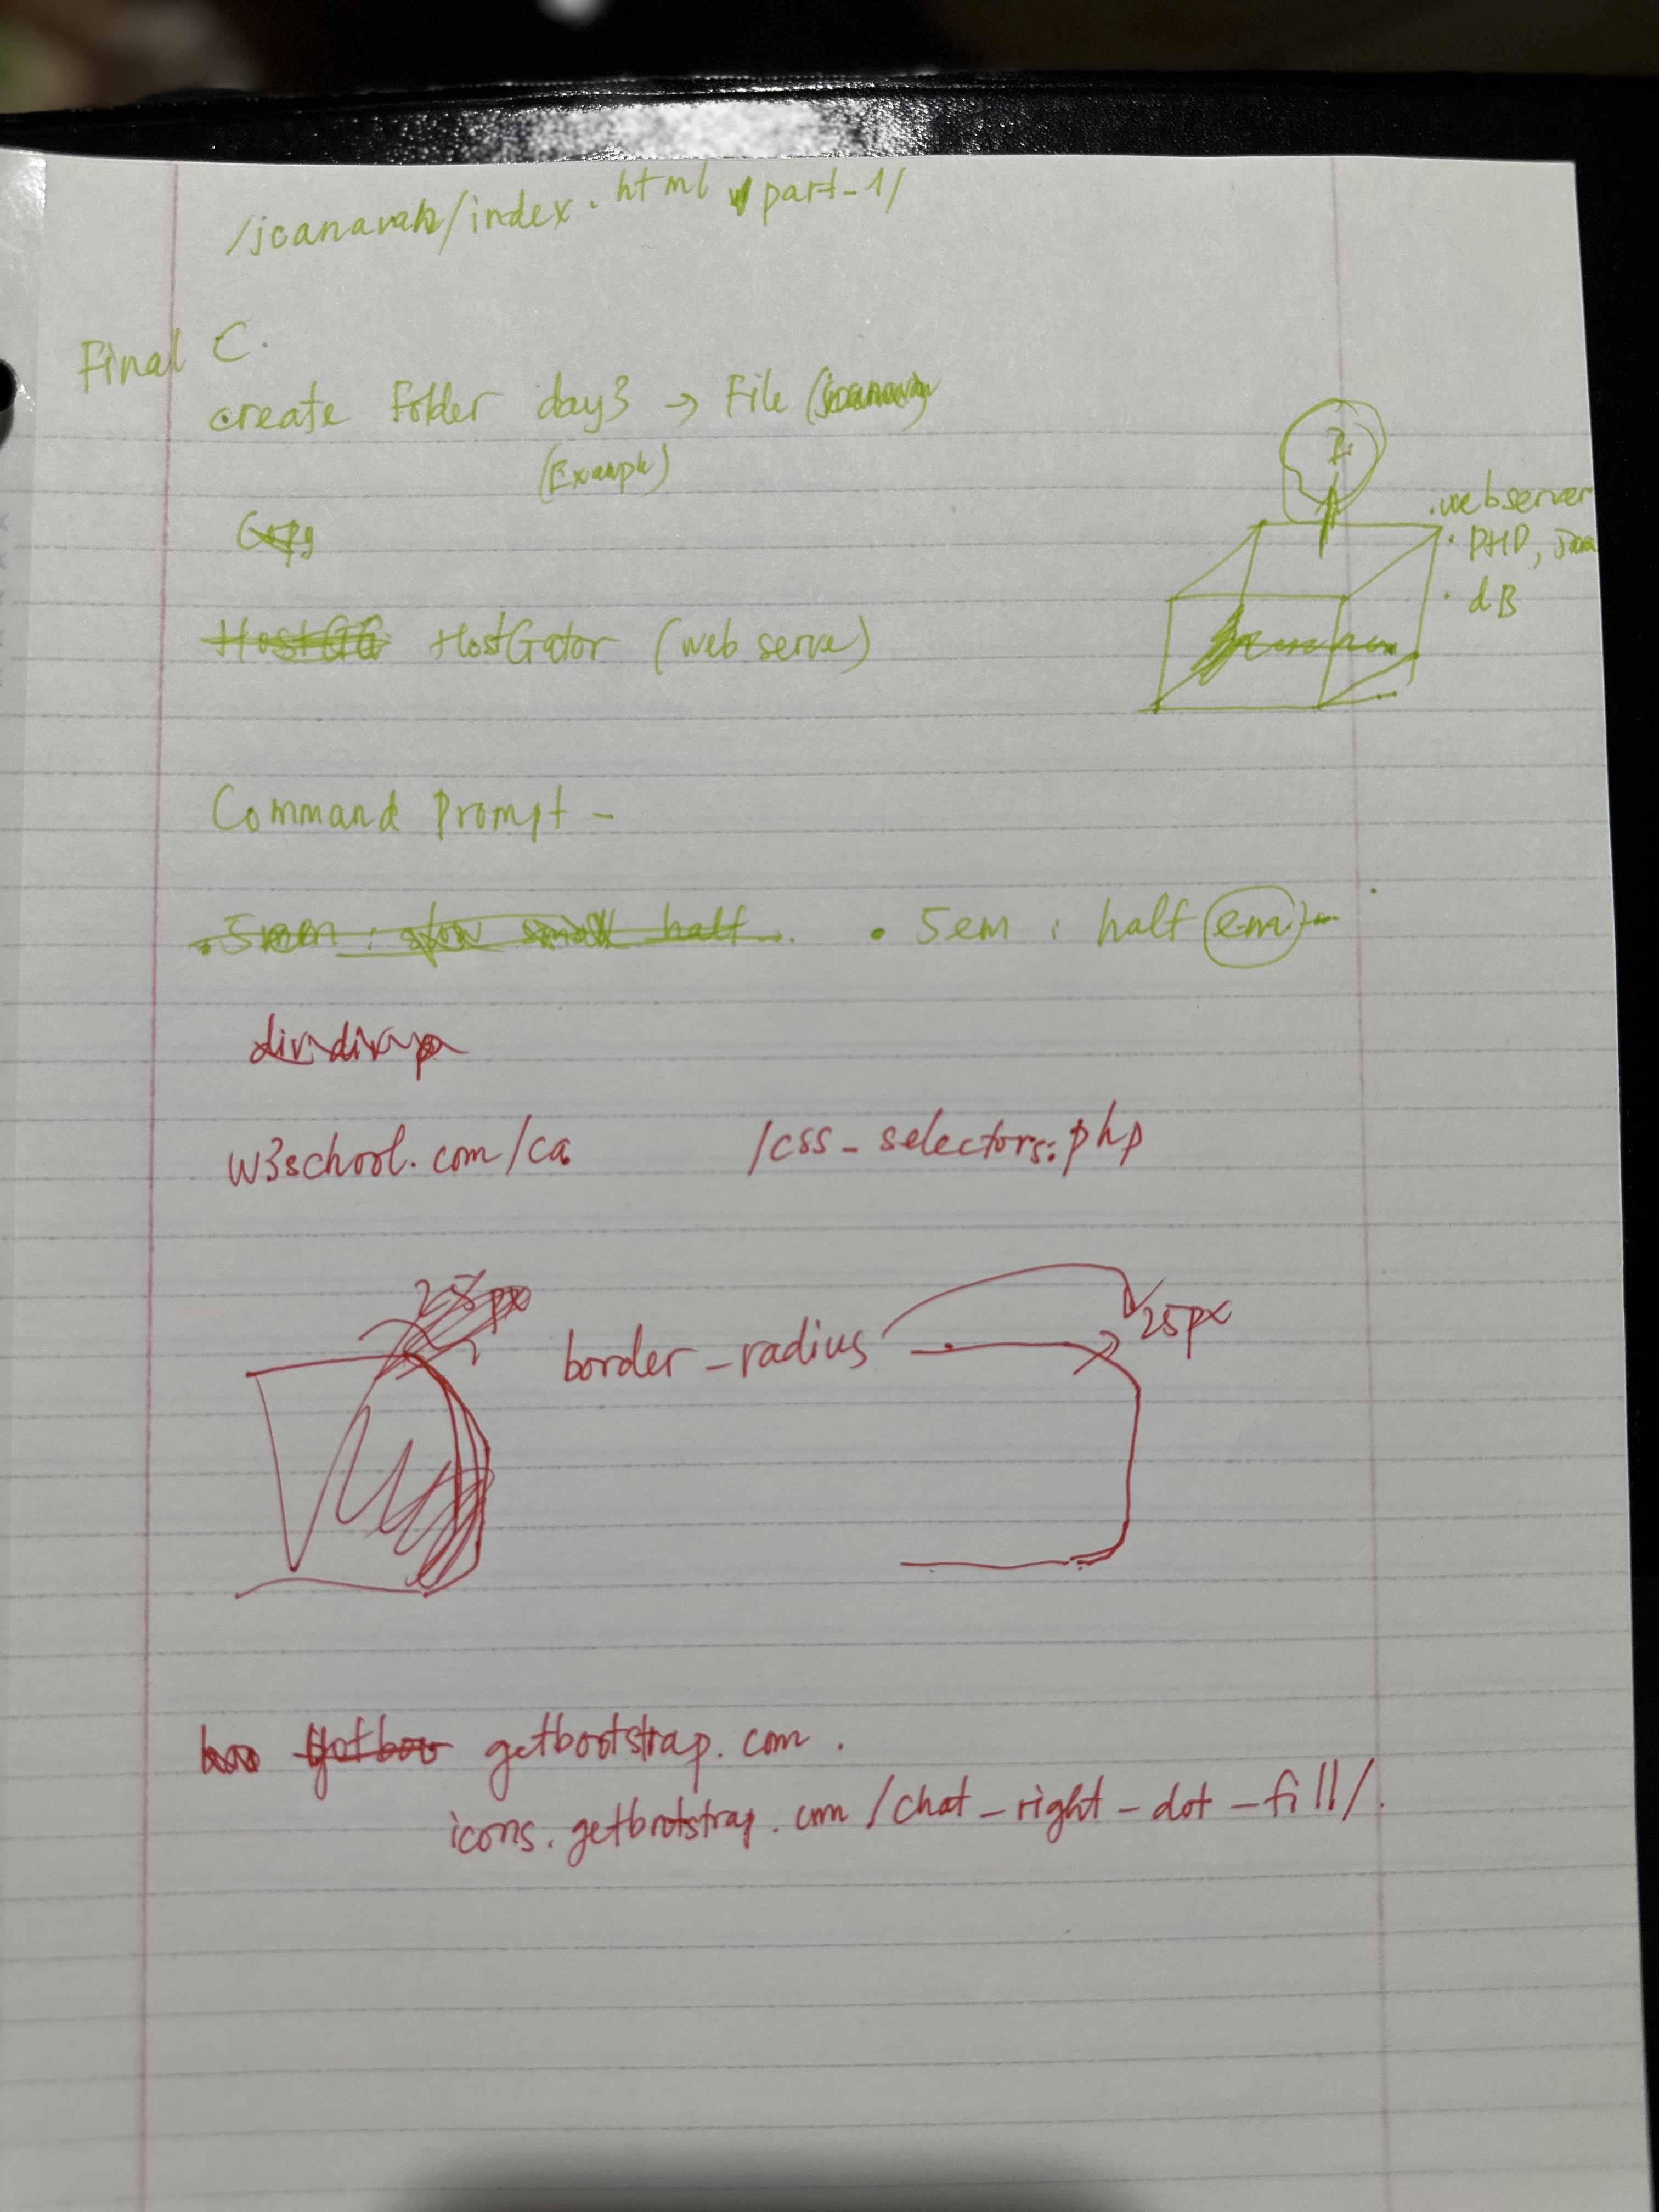 /jcanavan/index.html part-1/
Final C.
create Folder day3 → File
(Example)
.webserver
• PHP, java
• dB
HostGator (web serve)
Command Prompt -
• 5em : half em
w3school.com/ca /css-selectors.php
25px
border-radius 25px
getbootstrap.com.
icons.getbootstrap.com/chat-right-dot-fill/.